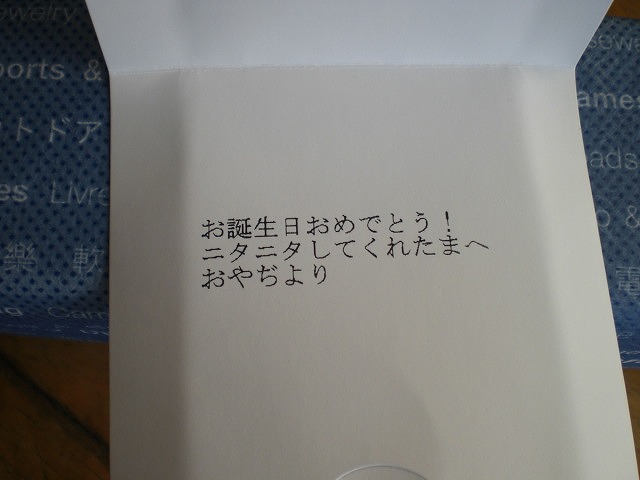 お誕生日おめでとう！
ニタニタしてくれたまへ
おやぢより
ewelry
ports &
トドア
es Livre
樂 軟
ames
ads
O &
電